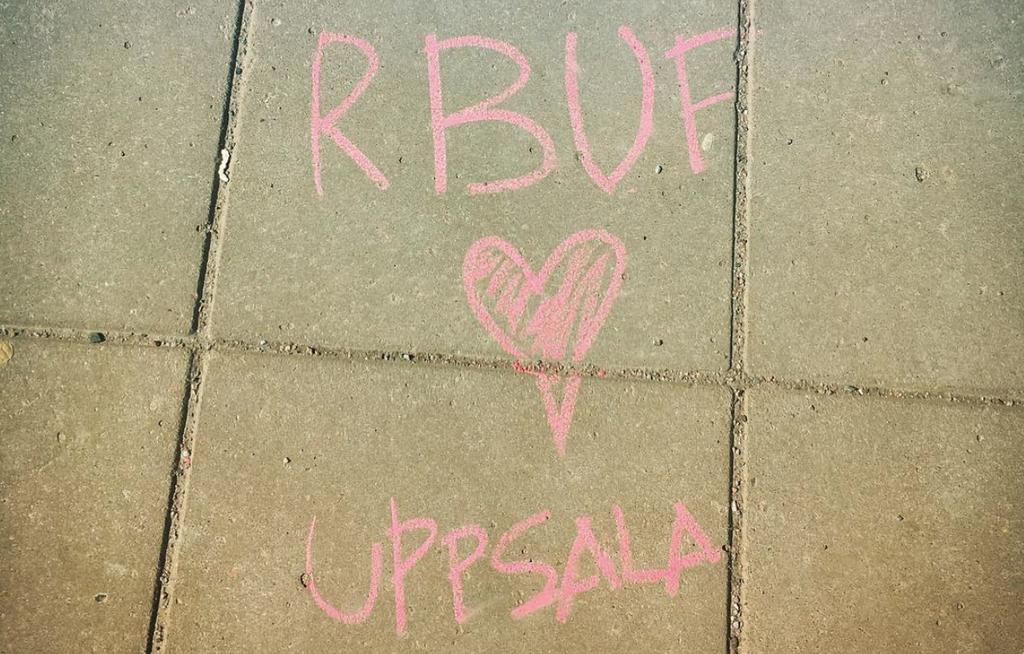 RBUF
UPPSALA